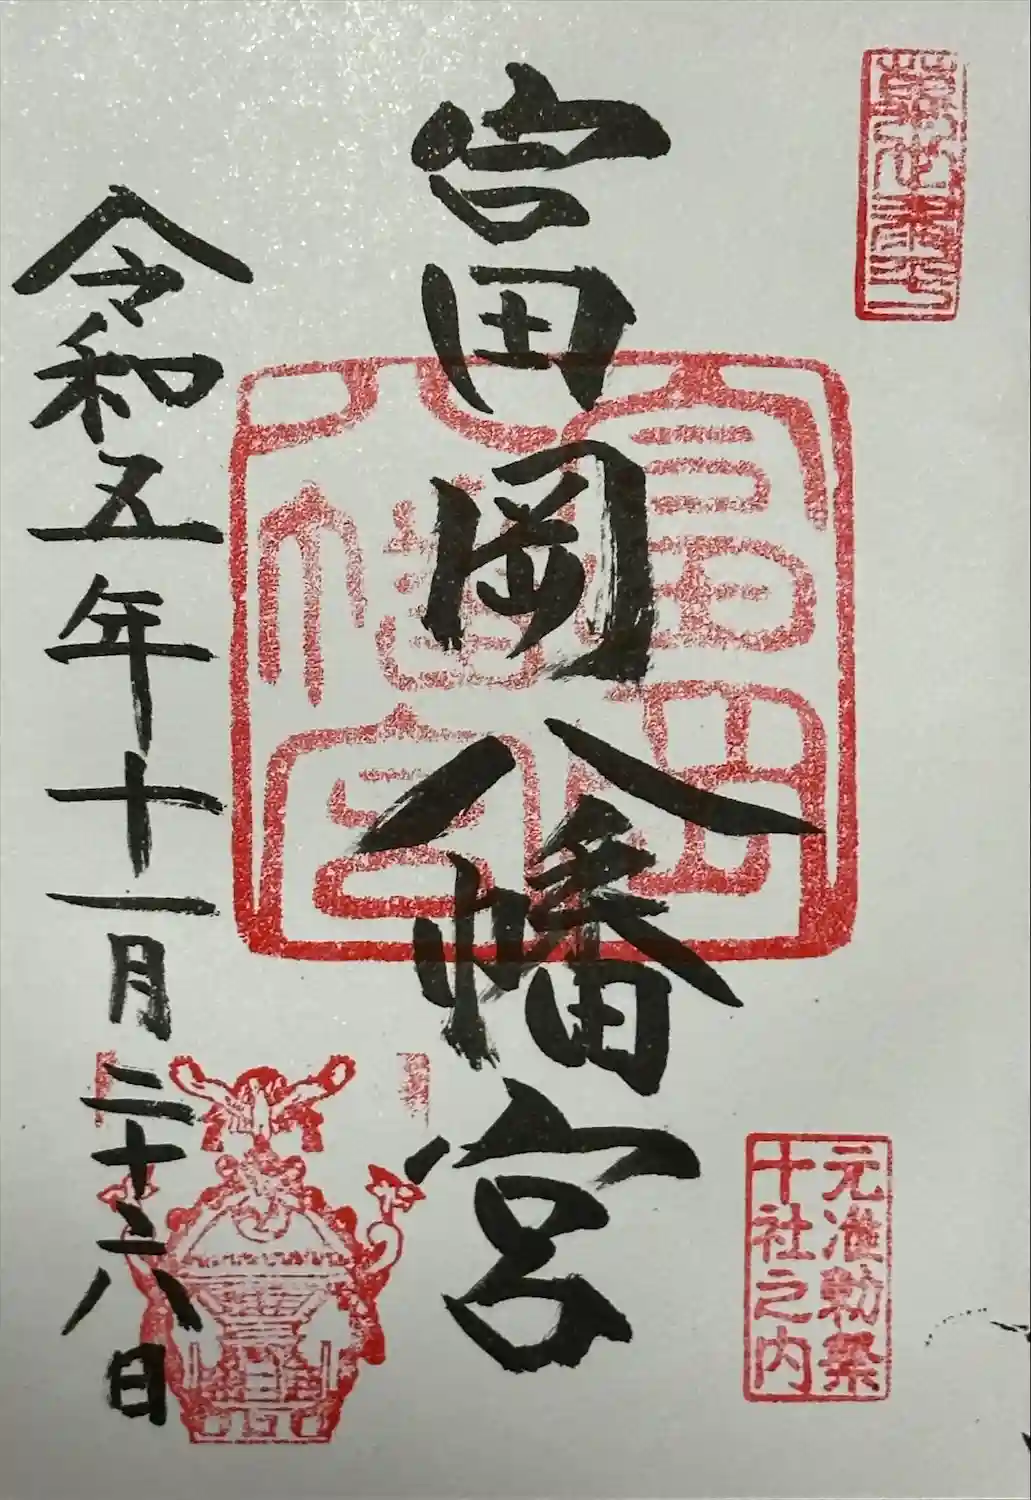 富岡八幡宮
富岡
八幡宮
元准勅祭
十社之内
令和五年十一月二十六日